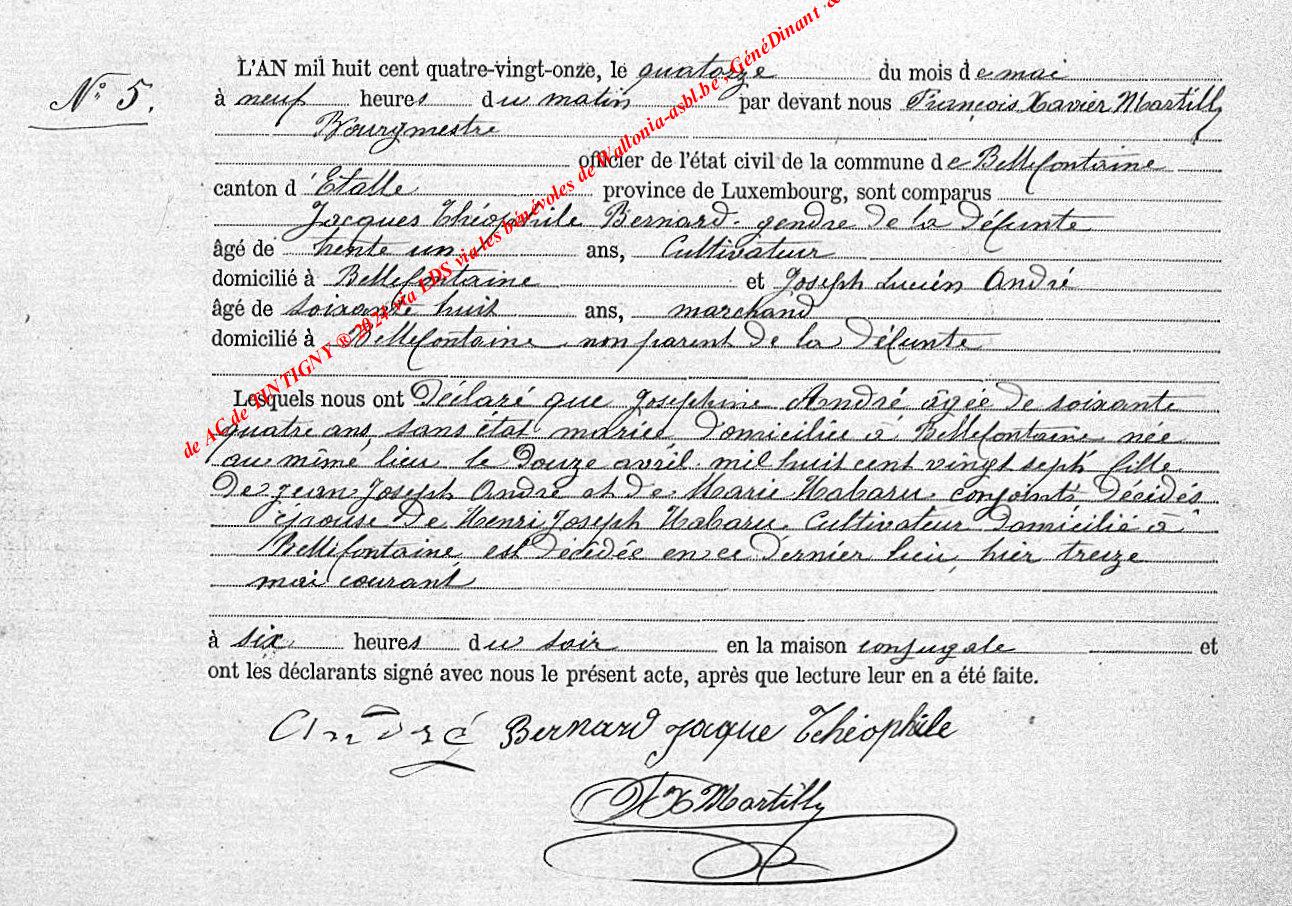 N° 5.
L'AN mil huit cent quatre-vingt-onze, le quatorze du mois de mai
à neuf heures du matin par devant nous François Xavier Martilly
Bourgmestre
officier de l'état civil de la commune de Bellefontaine
canton d'Etalle province de Luxembourg, sont comparus
Jacques Théophile Bernard gendre de la défunte
âgé de trente un ans, Cultivateur
domicilié à Bellefontaine et Joseph Lucien André
âgé de soixante huit ans, marchand
domicilié à Bellefontaine non parent de la défunte
Lesquels nous ont Déclaré que Josephine André âgée de soixante
quatre ans, sans état mariée domiciliée à Bellefontaine née
au même lieu le douze avril mil huit cent vingt sept fille
de Jean Joseph André et de Marie Habaru conjoints décédés
épouse de Henri Joseph Habaru Cultivateur domicilié à
Bellefontaine est décédée en ce dernier lieu, hier treize
mai courant
à six heures du soir en la maison conjugale et
ont les déclarants signé avec nous le présent acte, après que lecture leur en a été faite.
André Bernard Jaque Théophile
FX Martilly
de AC de TINTIGNY ® 2021 via LDS via les bénévoles de Wallonia-asbl.be - GénéDinant &